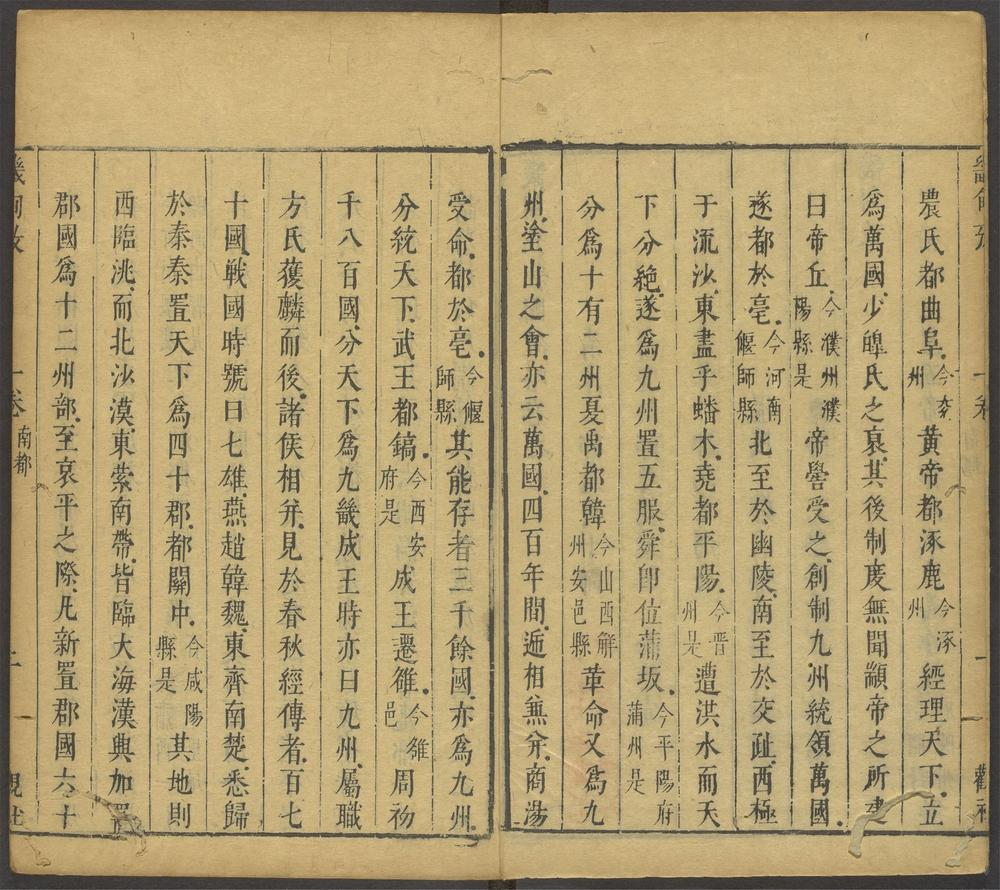 農氏都曲阜今兖州黃帝都涿鹿今涿州經理天下立
爲萬國少皥氏之衰其後制度無聞顓帝之所建
曰帝丘今濮州濮陽縣是帝嚳受之創制九州統領萬國
遂都於亳今河南偃師縣北至於幽陵南至於交趾西極
于流沙東盡乎蟠木堯都平陽今晋州是遭洪水而天
下分絶遂爲九州置五服舜卽位蒲坂今平陽府蒲州是
分爲十有二州夏禹都韓今山西解州安邑縣革命又爲九
州塗山之會亦云萬國四百年間逓相兼并商湯
受命都於亳今偃師縣其能存者三千餘國亦爲九州
分統天下武王都鎬今西安府是成王遷雒今雒邑周初
千八百國分天下爲九畿成王時亦曰九州屬職
方氏獲麟而後諸侯相并見於春秋經傳者百七
十國戰國時號曰七雄燕趙韓魏東齊南楚悉歸
於秦秦置天下爲四十郡都關中今咸陽縣是其地則
西臨洮而北沙漠東縈南帶皆臨大海漢興加置
郡國爲十二州部至哀平之際凡新置郡國六十
一卷
南都
二